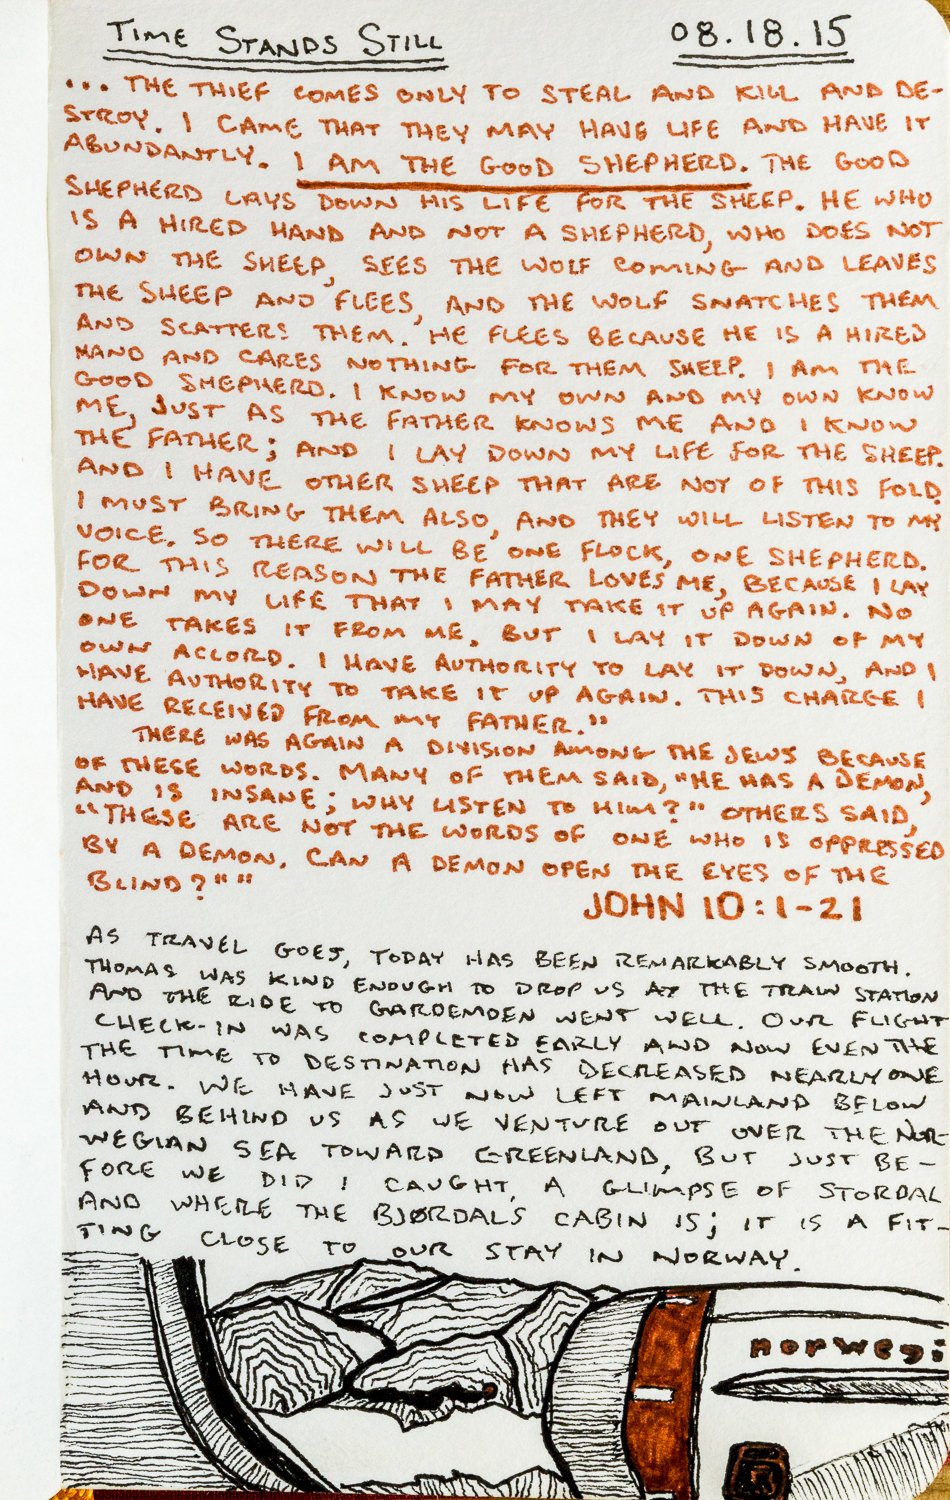 TIME STANDS STILL
08.18.15
... THE THIEF COMES ONLY TO STEAL AND KILL AND DE-
STROY. I CAME THAT THEY MAY HAVE LIFE AND HAVE IT
ABUNDANTLY. I AM THE GOOD SHEPHERD. THE GOOD
SHEPHERD LAYS DOWN HIS LIFE FOR THE SHEEP. HE WHO
IS A HIRED HAND AND NOT A SHEPHERD, WHO DOES NOT
OWN THE SHEEP, SEES THE WOLF COMING AND LEAVES
THE SHEEP AND FLEES, AND THE WOLF SNATCHES THEM
AND SCATTERS THEM. HE FLEES BECAUSE HE IS A HIRED
HAND AND CARES NOTHING FOR THEM SHEEP. I AM THE
GOOD SHEPHERD. I KNOW MY OWN AND MY OWN KNOW
ME, JUST AS THE FATHER KNOWS ME AND I KNOW
THE FATHER; AND I LAY DOWN MY LIFE FOR THE SHEEP.
AND I HAVE OTHER SHEEP THAT ARE NOT OF THIS FOLD.
I MUST BRING THEM ALSO, AND THEY WILL LISTEN TO MY
VOICE. SO THERE WILL BE ONE FLOCK, ONE SHEPHERD.
FOR THIS REASON THE FATHER LOVES ME, BECAUSE I LAY
DOWN MY LIFE THAT I MAY TAKE IT UP AGAIN. NO
ONE TAKES IT FROM ME, BUT I LAY IT DOWN OF MY
OWN ACCORD. I HAVE AUTHORITY TO LAY IT DOWN, AND I
HAVE AUTHORITY TO TAKE IT UP AGAIN. THIS CHARGE I
HAVE RECEIVED FROM MY FATHER."
THERE WAS AGAIN A DIVISION AMONG THE JEWS BECAUSE
OF THESE WORDS. MANY OF THEM SAID, "HE HAS A DEMON,
AND IS INSANE; WHY LISTEN TO HIM?" OTHERS SAID,
"THESE ARE NOT THE WORDS OF ONE WHO IS OPPRESSED
BY A DEMON. CAN A DEMON OPEN THE EYES OF THE
BLIND?" "
JOHN 10:1-21
AS TRAVEL GOES, TODAY HAS BEEN REMARKABLY SMOOTH.
THOMAS WAS KIND ENOUGH TO DROP US AT THE TRAIN STATION
AND THE RIDE TO GARDEMOEN WENT WELL. OUR FLIGHT
CHECK-IN WAS COMPLETED EARLY AND NOW EVEN THE
THE TIME TO DESTINATION HAS DECREASED NEARLY ONE
HOUR. WE HAVE JUST NOW LEFT MAINLAND BELOW
AND BEHIND US AS WE VENTURE OUT OVER THE NOR-
WEGIAN SEA TOWARD GREENLAND, BUT JUST BE-
FORE WE DID I CAUGHT A GLIMPSE OF STORDAL
AND WHERE THE BJØRDALS CABIN IS; IT IS A FIT-
TING CLOSE TO OUR STAY IN NORWAY.
norwegi